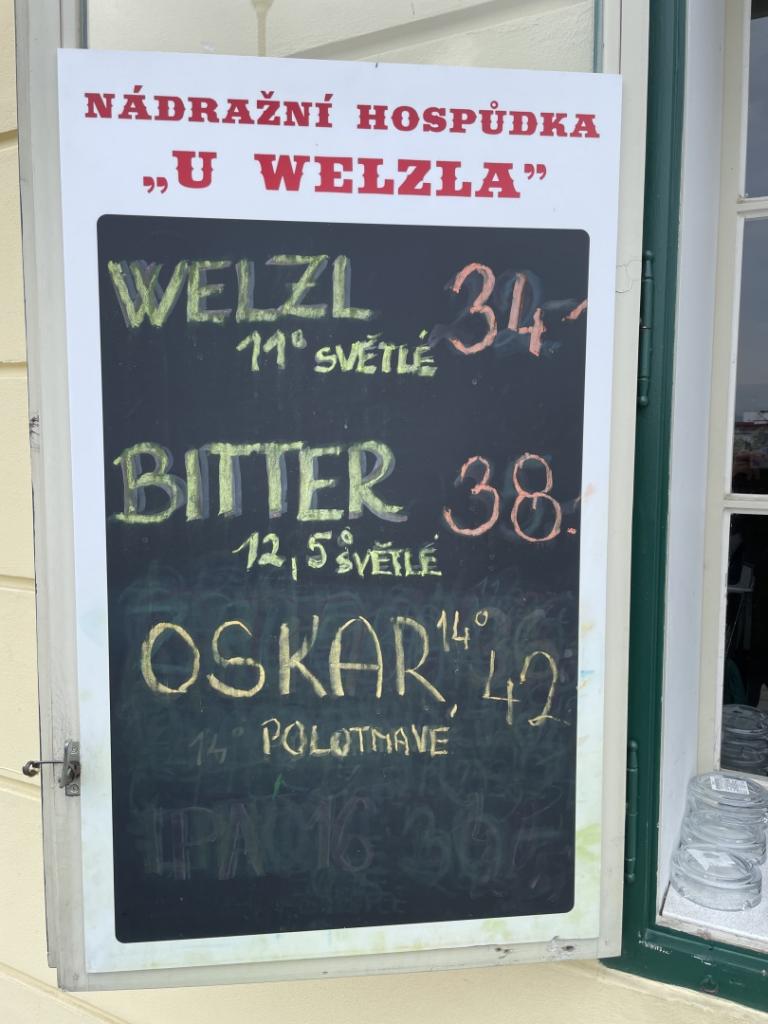 NÁDRAŽNÍ HOSPŮDKA
„U WELZLA”
WELZL 34,-
11° SVĚTLÉ
BITTER 38,-
12,5° SVĚTLÉ
OSKAR 14° 42,-
14° POLOTMAVÉ
IPA 16